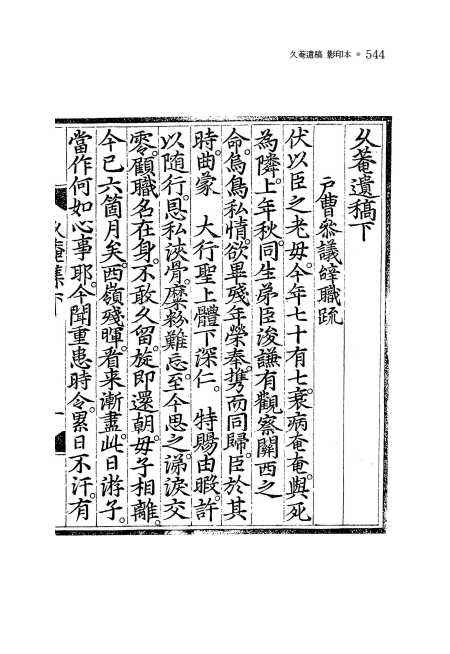 久菴遺稿 影印本 ● 544
久菴遺稿下
戶曹參議辭職疏
伏以臣之老母。今年七十有七。衰病奄奄。與死
為隣。上年秋。同生弟臣浚謙有觀察關西之
命。烏鳥私情。欲畢殘年榮奉。携而同歸。臣於其
時。曲蒙 大行聖上體下深仁。 特賜由暇。許
以随行。恩私浹骨。糜粉難忘。至今思之。涕淚交
零。顧職名在身。不敢久留。旋即還朝。母子相離。
今已六箇月矣。西嶺殘暉。看来漸盡。此日游子。
當作何如心事耶。今聞重患時令。累日不汗。有
久菴集下
一